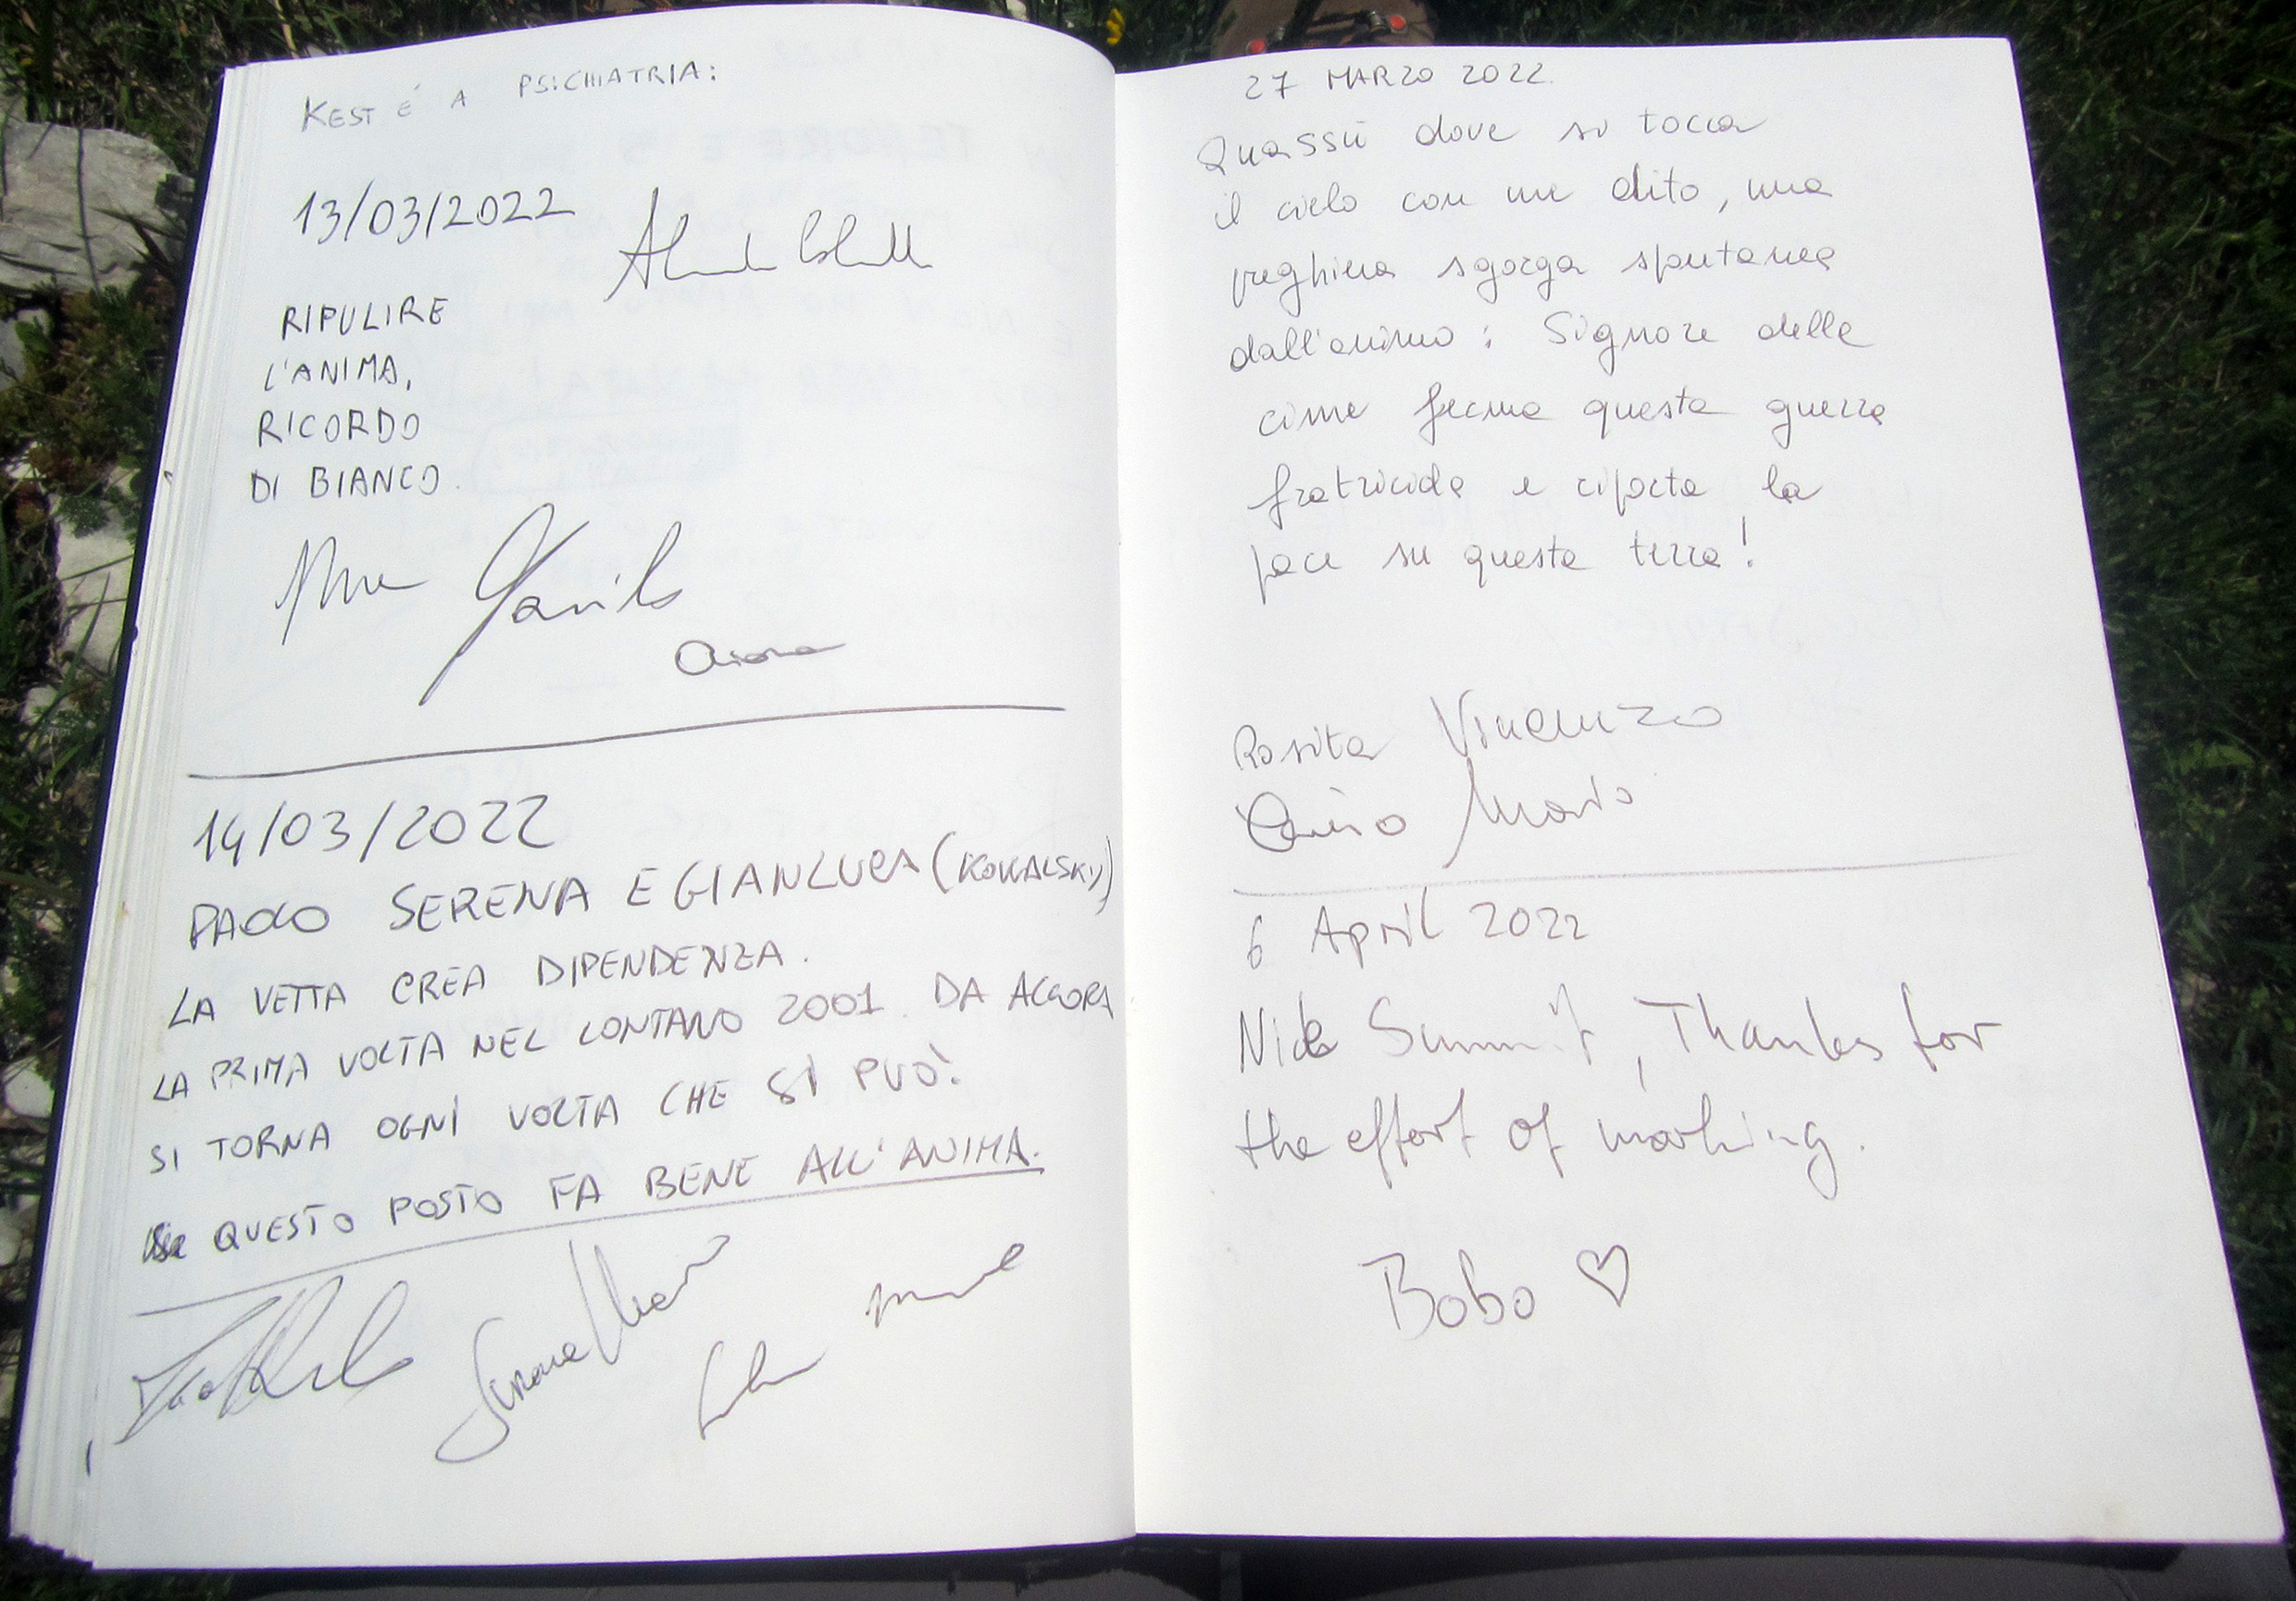 KEST É A PSICHIATRIA:
13/03/2022
RIPULIRE
L'ANIMA,
RICORDO
DI BIANCO.
14/03/2022
PAOLO SERENA E GIANLUCA (KOWALSKY)
LA VETTA CREA DIPENDENZA.
LA PRIMA VOLTA NEL LONTANO 2001. DA ALLORA
SI TORNA OGNI VOLTA CHE SI PUÒ!
QUESTO POSTO FA BENE ALL'ANIMA.
Simone
27 MARZO 2022.
Quassù dove si tocca
il cielo con un dito, una
preghiera sgorga spontanea
dall'animo: Signore delle
cime ferma questa guerra
fratricida e riporta la
pace su questa terra!
Rosita Vincenzo
Mario
6 April 2022
Nice Summit, Thanks for
the effort of marking.
Bobo ♡